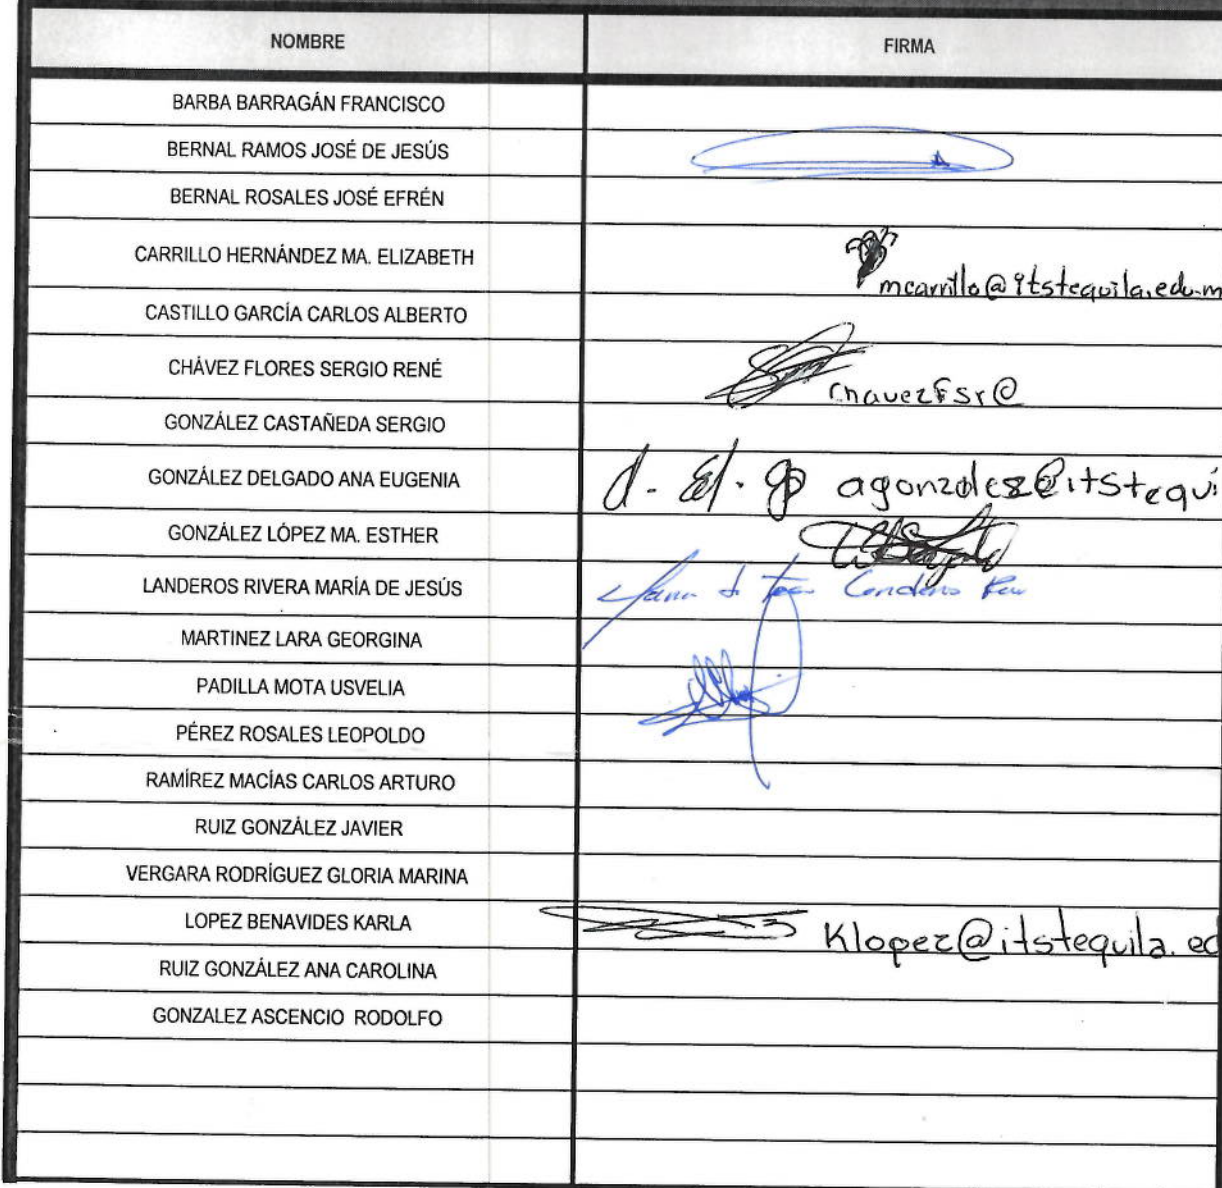 NOMBRE FIRMA
BARBA BARRAGÁN FRANCISCO
BERNAL RAMOS JOSÉ DE JESÚS
BERNAL ROSALES JOSÉ EFRÉN
CARRILLO HERNÁNDEZ MA. ELIZABETH mcarrillo@itstequila.edu.m
CASTILLO GARCÍA CARLOS ALBERTO
CHÁVEZ FLORES SERGIO RENÉ chavezfsr@
GONZÁLEZ CASTAÑEDA SERGIO
GONZÁLEZ DELGADO ANA EUGENIA agonzalez@itstequi
GONZÁLEZ LÓPEZ MA. ESTHER
LANDEROS RIVERA MARÍA DE JESÚS
MARTINEZ LARA GEORGINA
PADILLA MOTA USVELIA
PÉREZ ROSALES LEOPOLDO
RAMÍREZ MACÍAS CARLOS ARTURO
RUIZ GONZÁLEZ JAVIER
VERGARA RODRÍGUEZ GLORIA MARINA
LOPEZ BENAVIDES KARLA Klopez@itstequila.ed
RUIZ GONZÁLEZ ANA CAROLINA
GONZALEZ ASCENCIO RODOLFO